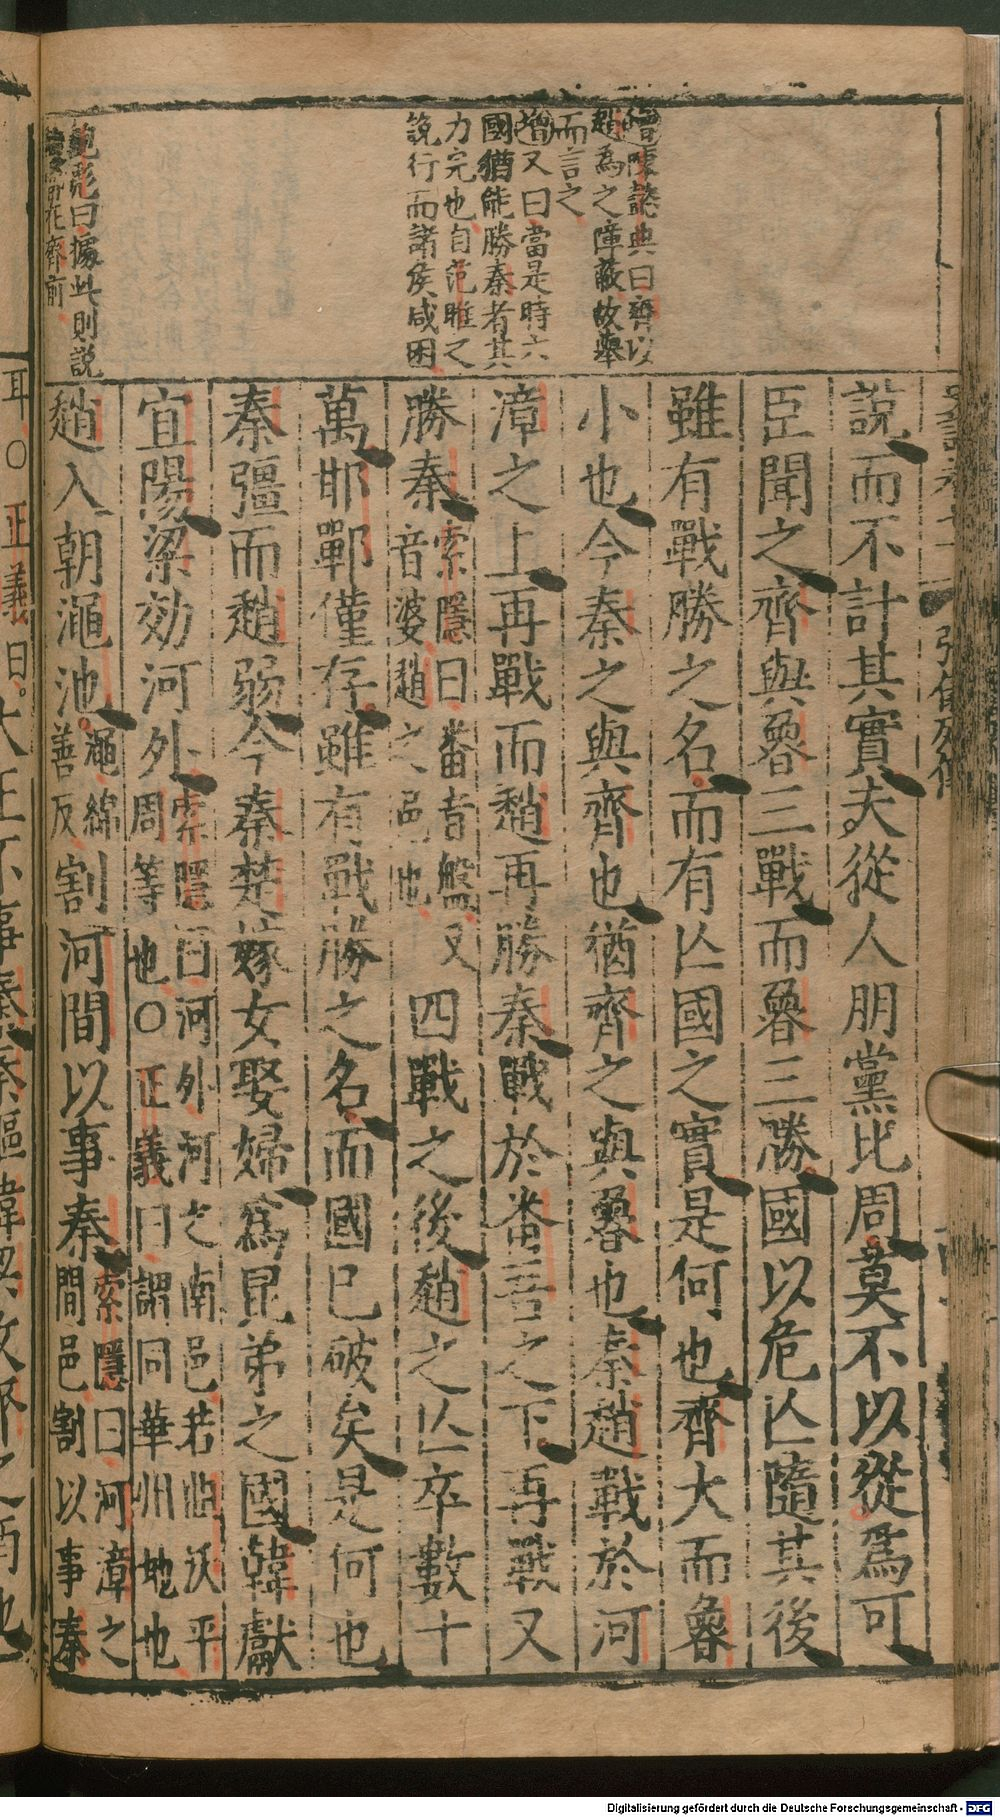 說而不計其實夫從人朋黨比周莫不以從爲可
臣聞之齊與魯三戰而魯三勝國以危亡隨其後
雖有戰勝之名而有亡國之實是何也齊大而魯
小也今秦之與齊也猶齊之與魯也秦趙戰於河
漳之上再戰而趙再勝秦戰於番吾之下再戰又
勝秦
索隱曰番音盤又
音婆趙之邑也
四戰之後趙之亡卒數十
萬邯鄲僅存雖有戰勝之名而國已破矣是何也
秦彊而趙弱今秦楚嫁女娶婦爲昆弟之國韓獻
宜陽梁効河外
索隱曰河外河之南邑若曲沃平
周等也○正義曰謂同華州地也
趙入朝澠池
澠綿
善反
割河間以事秦
索隱曰河漳之
間邑割以事秦
陳懿典曰齊以
趙為之障蔽故舉
而言之
增又曰當是時六
國猶能勝秦者其
力完也自范雎之
說行而諸侯咸困
鮑彪曰據此則說
在齊前
耳○正義曰
Digitalisierung gefördert durch die Deutsche Forschungsgemeinschaft - DFG